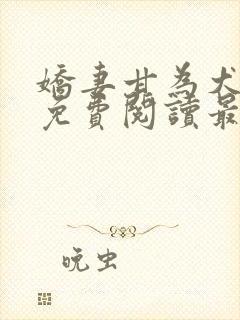 嬌妻甘為犬
免費閱讀最
晚虫